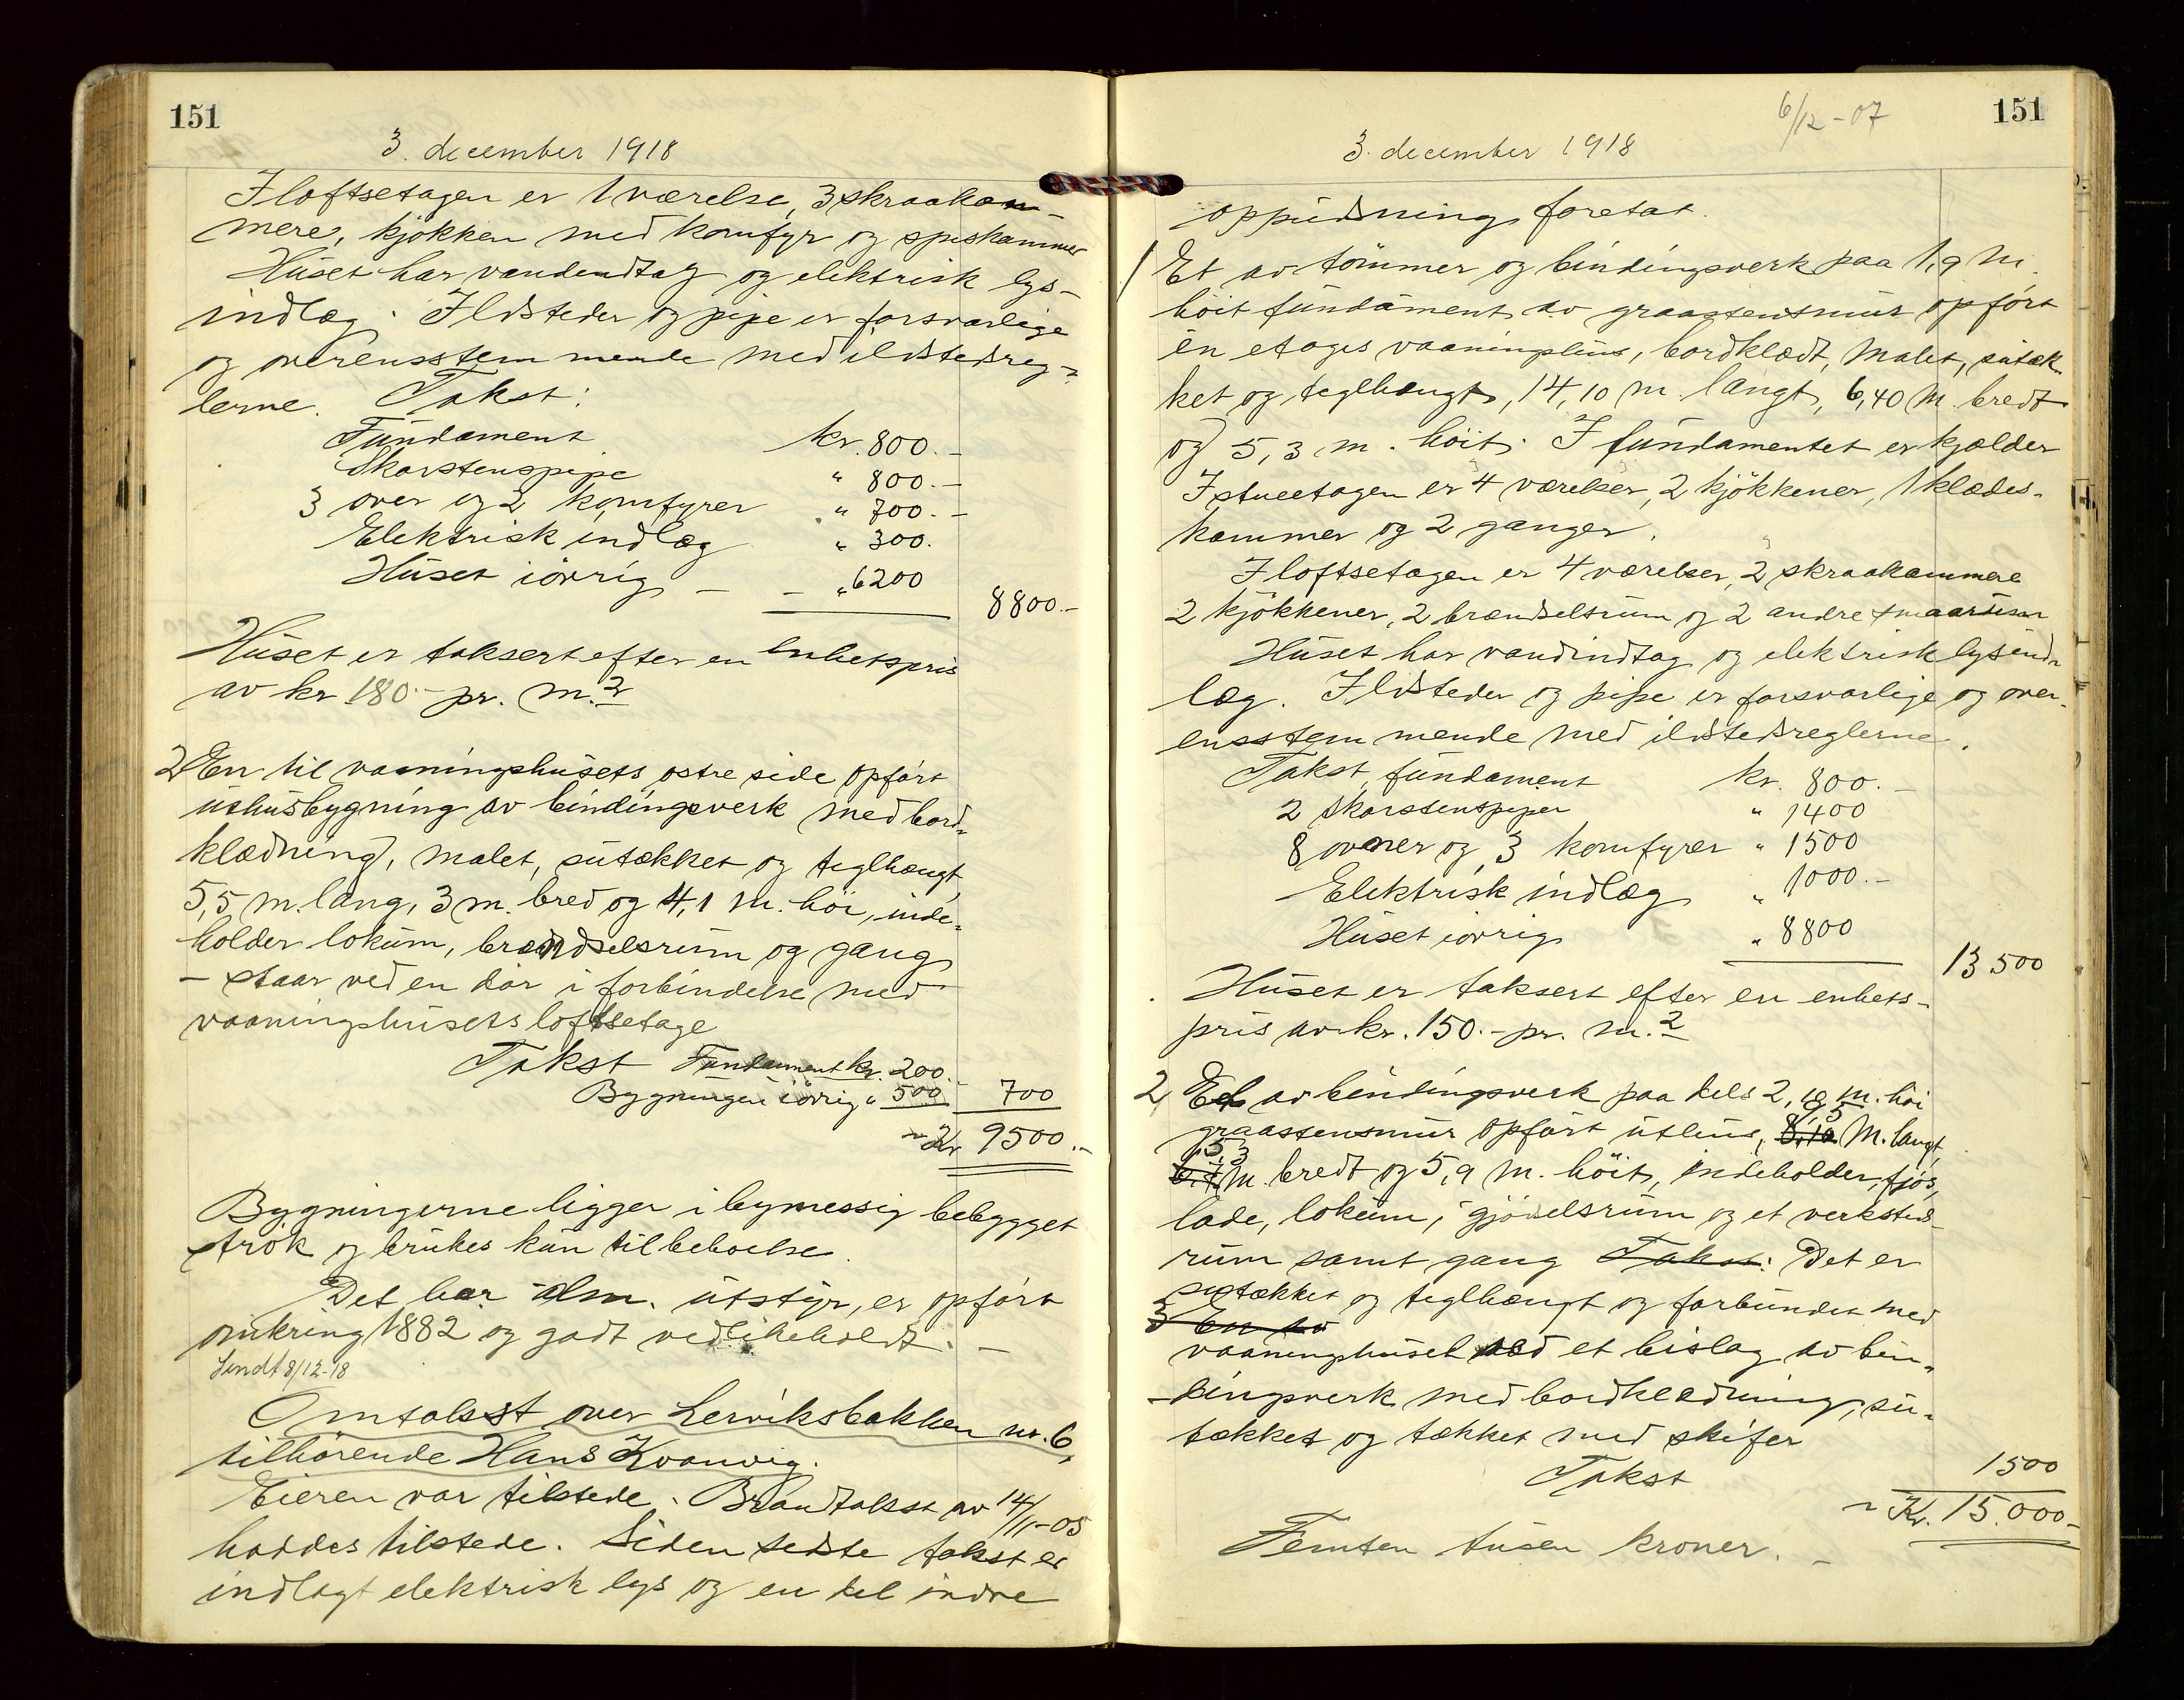 151
3. december 1918
I loftsetagen er 1 værelse, 3 skraakam-
mere, kjøkken med komfyr og spiskammer
Huset har vandindtag og elektrisk lys-
indlæg. Ildsteder og pipe er forsvarlige
og overensstemmende med ildstedsreg-
lerne. Takst:
Fundament kr. 800.-
Skorstenspipe " 800.-
3 over og 2 komfyrer " 700.-
Elektrisk indlæg " 300.
Huset iøvrig - - " 6200
8800.-
Huset er taksert efter en enhetspris
av kr 180.- pr. m.2
2 En til vaaningshusets østre side opført
uthusbygning av bindingsverk med bord-
klædning, malet, sutækket og teglhængt,
5,5 m. lang, 3 m. bred og 4,1 m. høi, inde-
holder lokum, brændselsrum og gang
- staar ved en dør i forbindelse med
vaaningshusets loftsetage
Takst Fundament kr. 200.-
Bygningen iøvrig " 500 700
~ Kr 9500.-
Bygningerne ligger i bymessig bebygget
strøk og brukes kun til beboelse.
Det har alm. utstyr, er opført
omkring 1882 og godt vedlikeholdt. -
Sendt 8/12-18
Omtakst over Lerviksbakken nr. 6,
tilhørende Hans Kvanvig.
Eieren var tilstede. Brandtakst av 14/11-05
haddes tilstede. Siden sidste takst er
indlagt elektrisk lys og en del indre
6/12-07
151
3. december 1918
oppudsning foretat.
1 Et av tømmer og bindingsverk paa 1,9 m.
høit fundament av graastensmur opført
en etages vaaningshus, bordklædt, malet, sutæk-
ket og teglhængt, 14,10 m. langt, 6,40 m. bredt
og 5,3 m. høit. I fundamentet er kjælder
I stueetagen er 4 værelser, 2 kjøkkener, 1 klædes-
kammer og 2 ganger.
I loftsetagen er 4 værelser, 2 skraakammere
2 kjøkkener, 2 brændselsrum og 2 andre smaarum
Huset har vandindtag og elektrisk lysind-
læg. Ildsteder og pipe er forsvarlige og over-
ensstemmende med ildstedsreglerne.
Takst, fundament kr. 800.-
2 Skorstenspiper " 1400
8 ovner og 3 komfyrer " 1500
Elektrisk indlæg " 1000.-
Huset iøvrig " 8800
13 500
Huset er taksert efter en enhets-
pris av kr. 150.- pr. m.2
2 Et av bindingsverk paa dels 2,10 m. høi
graastensmur opført uthus, 9,5 m. langt,
5,3 m. bredt og 5,9 m. høit, indeholder fjøs,
lade, lokum, gjødselsrum og et verksteds-
rum samt gang Takst: Det er
sutækket og teglhængt og forbundet med
3 En av
vaaningshuset ved et bislag av bin-
dingsverk med bordklædning, su-
tækket og tækket med skifer
Takst 1500
~ Kr. 15.000-
Femten tusen kroner. -